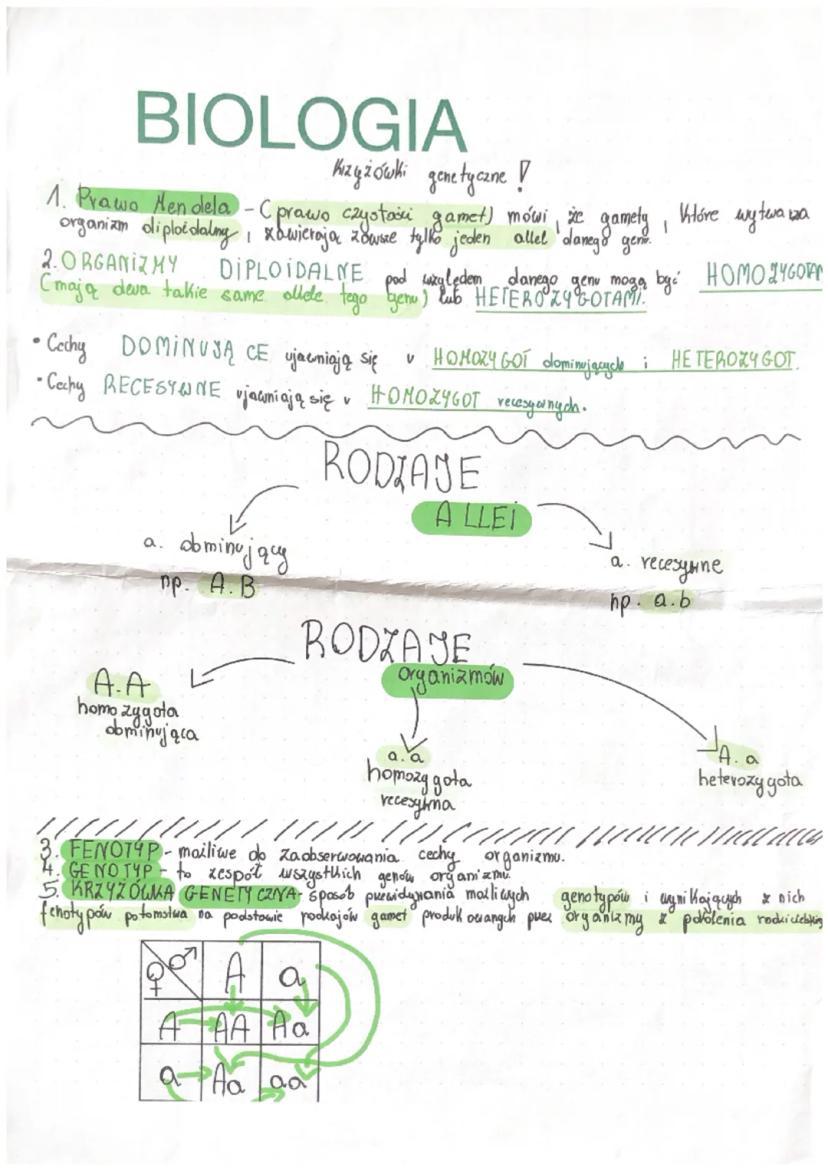 BIOLOGIA
Krzyżówki genetyczne !
1. Prawo Mendela - (prawo czystości gamet) mówi, że gamety, które wytwarza
organizm diploidalny, zawierają zawsze tylko jeden allel danego genu.
2. ORGANIZMY DIPLOIDALNE pod względem danego genu mogą być HOMOZYGOTAM
(mają dwa takie same allele tego genu) lub HETEROZYGOTAMI.
• Cechy DOMINUJĄCE ujawniają się u HOMOZYGOT dominujących i HETEROZYGOT.
• Cechy RECESYWNE ujawniają się u HOMOZYGOT recesywnych.
RODZAJE
ALLEI
a. dominujący
np. A.B
a. recesywne
np. a.b
RODZAJE
organizmów
A.A
homozygota
dominująca
a.a
homozygota
recesywna
A.a
heterozygota
3. FENOTYP - możliwe do zaobserwowania cechy organizmu.
4. GENOTYP - to zespół wszystkich genów organizmu.
5. KRZYŻÓWKA GENETYCZNA - sposób przewidywania możliwych genotypów i wynikających z nich
fenotypów potomstwa na podstawie rodzajów gamet produkowanych przez organizmy z pokolenia
♀ ♂ A a
A AA Aa
a Aa aa